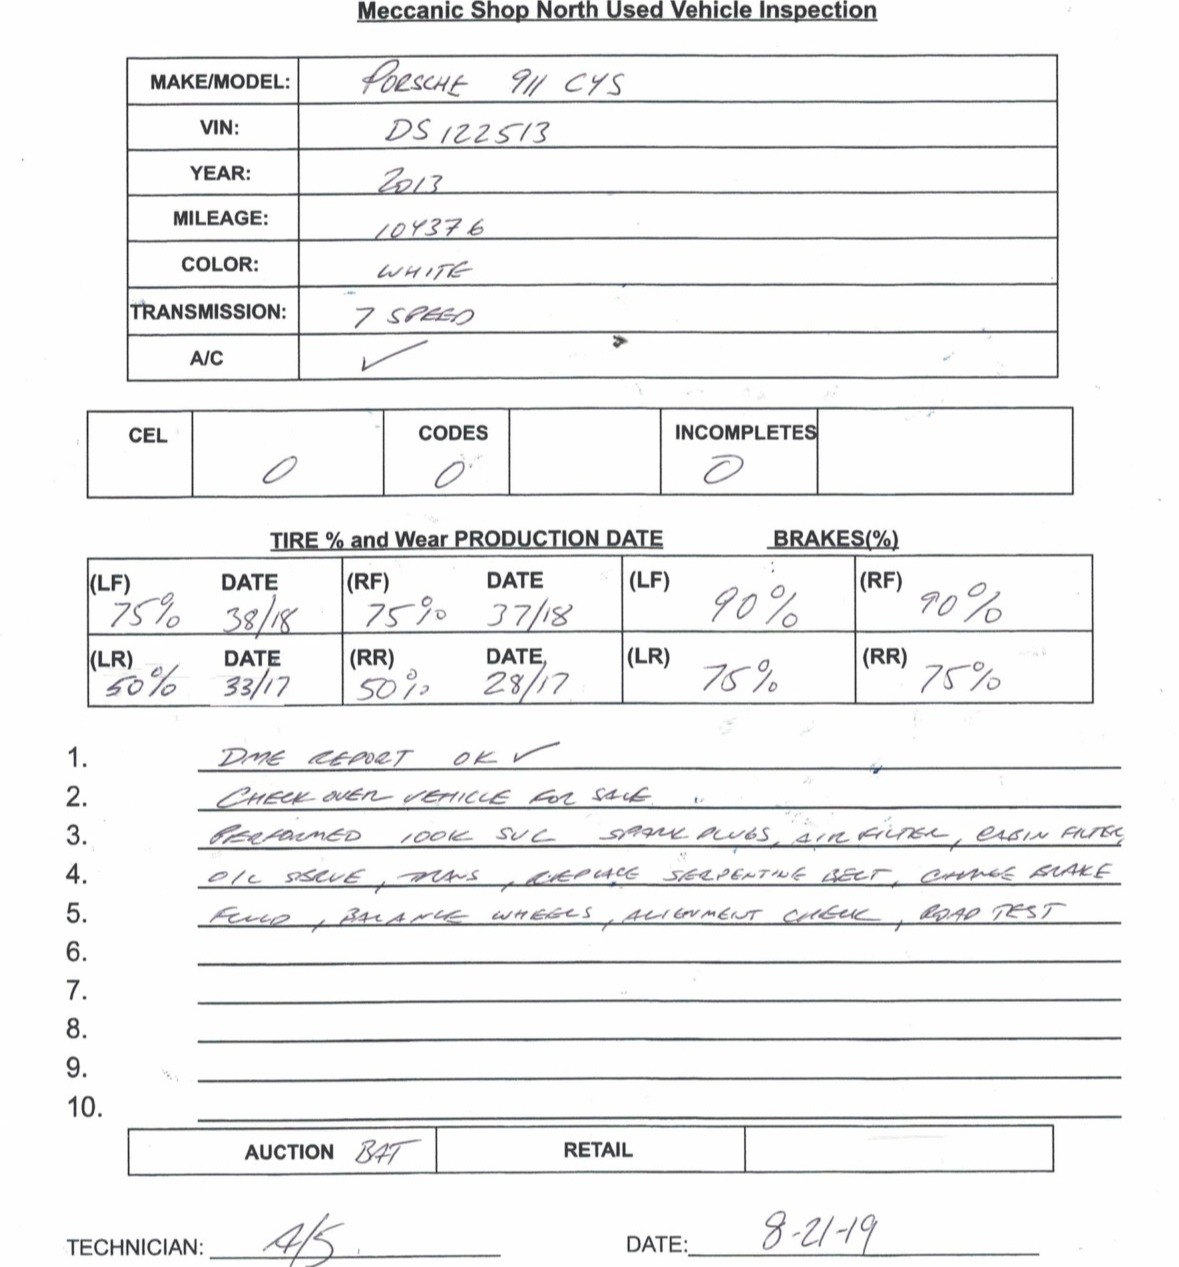 Meccanic Shop North Used Vehicle Inspection
MAKE/MODEL: PORSCHE 911 C4S
VIN: DS122513
YEAR: 2013
MILEAGE: 104376
COLOR: WHITE
TRANSMISSION: 7 SPEED
A/C ✓
CEL 0 CODES 0 INCOMPLETES 0
TIRE % and Wear PRODUCTION DATE BRAKES(%)
(LF) DATE (RF) DATE (LF) (RF)
75% 38/18 75% 37/18 90% 90%
(LR) DATE (RR) DATE (LR) (RR)
50% 33/17 50% 28/17 75% 75%
1. DME REPORT OK ✓
2. CHECK OVER VEHICLE FOR SALE
3. PERFORMED 100K SVC SPARK PLUGS, AIR FILTER, CABIN FILTER,
4. OIL , TRANS , REPLACE SERPENTINE BELT, CHANGE BRAKE
5. FLUID, BALANCE WHEELS, ALIGNMENT CHECK, ROAD TEST
6.
7.
8.
9.
10.
AUCTION BAT RETAIL
TECHNICIAN: DATE: 8-21-19